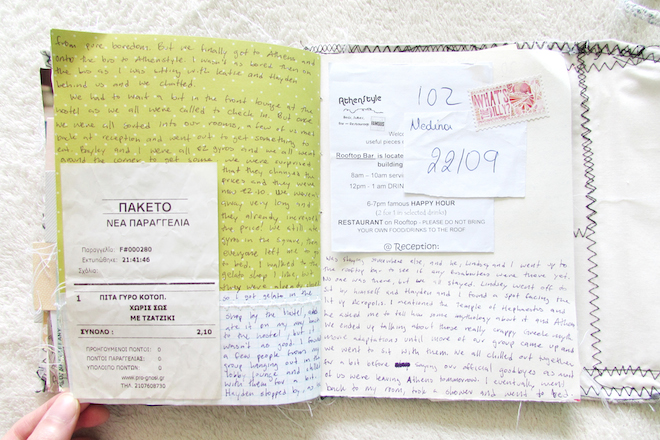 from pure boredom. But we finally got to Athens and
onto the bus to Athenstyle. I wasn't as bored then on
the bus as I was sitting with and Hayden
behind us and we chatted.
We had to wait a bit in the front lounge at the
hostel as we all were called to check in. But once
we were all sorted into our rooms, a few of us met
back at reception and went out to get something to
eat. Bayley and I were all €2 gyros and we all went
around the corner to get some. We were surprised
that they changed the
prices and they were
now €2.10. We weren't
away very long and
they already increased
the price! We still ate
gyros in the square, then
everyone left me to go
to bed. I walked to the
gelato shop I like, but
they were already shut
so I got gelato in the
shop by the hostel and
ate it on my way back
to the hostel, but it
wasn't as good. I found
a few people from our
group hanging out in the
lobby lounge and chilled
with them for a bit.
Hayden stopped by, as
ΠΑΚΕΤΟ
ΝΕΑ ΠΑΡΑΓΓΕΛΙΑ
Παραγγελία: F#000280
Εκτυπώθηκε: 21:41:46
Σχόλια:
1 ΠΙΤΑ ΓΥΡΟ ΚΟΤΟΠ.
ΧΩΡΙΣ ΣΩΣ
ΜΕ ΤΖΑΤΖΙΚΙ
ΣΥΝΟΛΟ : 2,10
ΠΡΟΗΓΟΥΜΕΝΟΙ ΠΟΝΤΟΙ: 0
ΠΟΝΤΟΙ ΠΑΡΑΓΓΕΛΙΑΣ: 0
ΥΠΟΛΟΙΠΟ ΠΟΝΤΩΝ: 0
www.pro-gnosi.gr
ΤΗΛ: 2107608730
AthenStyle
102
Medina
22/09
WHAT'S
Welc
useful pieces
Rooftop Bar is locate
building
8am – 10am servin
12pm - 1 am DRIN
6-7pm famous HAPPY HOUR
(2 for 1 in selected drinks)
RESTAURANT on Rooftop - PLEASE DO NOT BRING
YOUR OWN FOOD/DRINKS TO THE ROOF
@ Reception:
was staying somewhere else, and he, Lindsey and I went up to
the rooftop bar to see if any were there yet.
No one was there, but we stayed. Lindsey went off to
sit by herself and Hayden and I found a spot facing the
lit up Acropolis. I mentioned the Temple of Hephaestus and
he asked me to tell him some mythology about it and Athena
We ended up talking about these really crappy Greek myth
movie adaptations until more of our group came up and
we went to sit with them. We all chilled out together
for a bit before saying our official goodbyes as most
of us were leaving Athens tomorrow. I eventually went
back to my room, took a shower and went to bed.